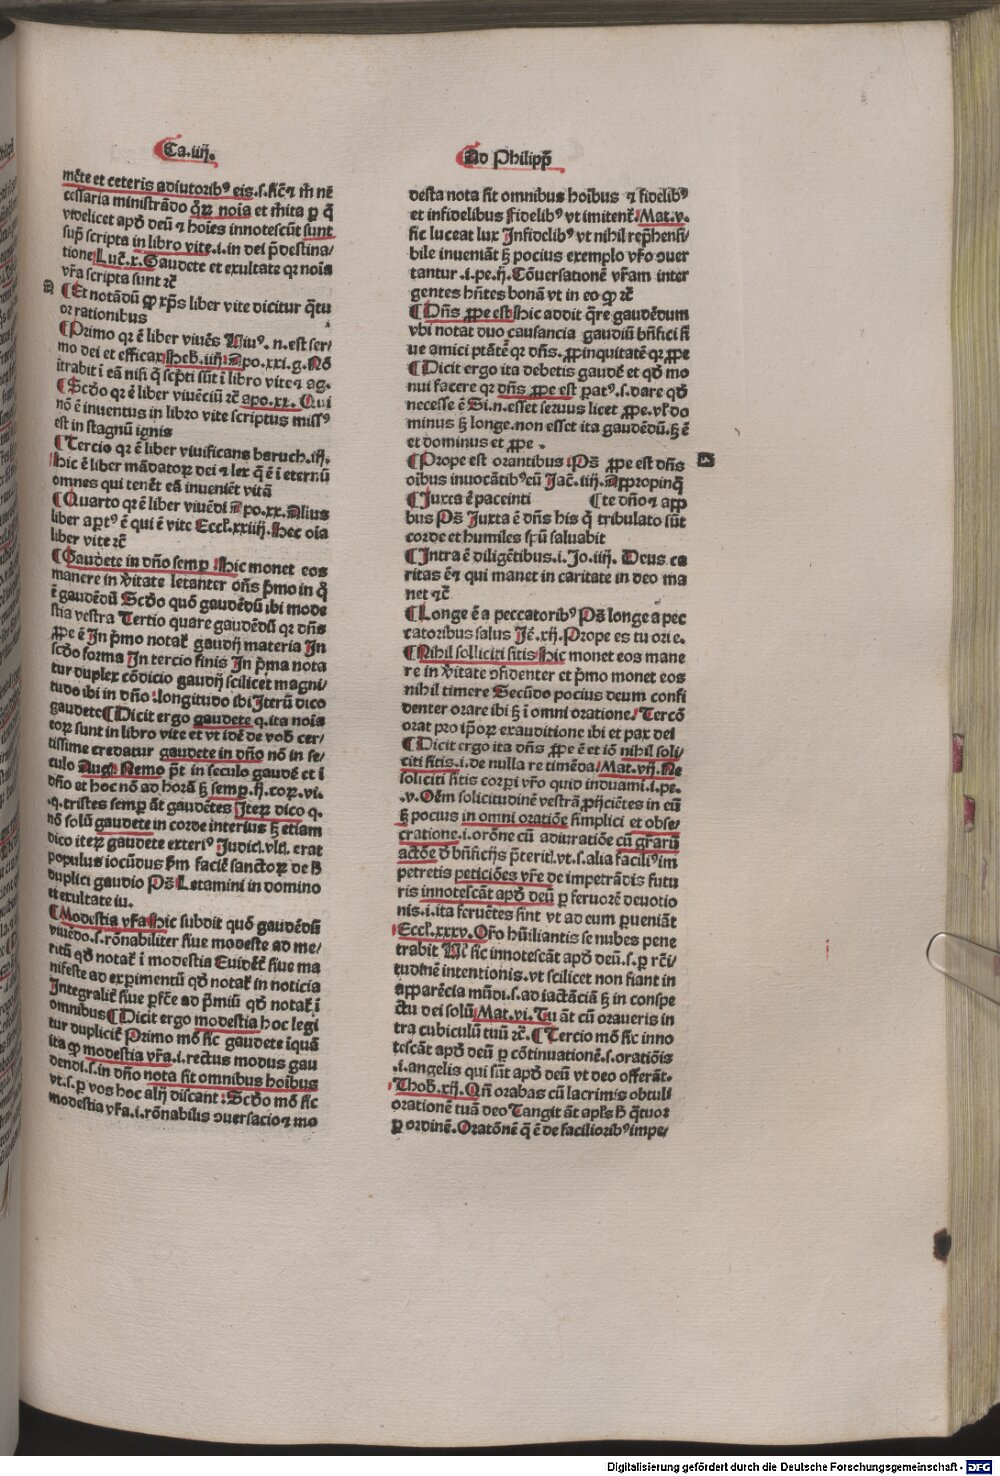 Ca.iiij.
mēte et ceteris adiutoribꝰ eis.s.sicē⁊ m̄ ne
cessaria ministrādo qr̄ꝝ noīa et m̄ita p q̄
videlicet apđ deū ⁊ hoīes innotescūt sunt
sup̄ scripta in libro vite.i.in dei p̄destina/
tione Luc̄.x.Gaudete et exultate qr noīa
vr̄a scripta sunt ⁊c̄
a
¶Et notādū ꝙ xp̄s liber vite dicitur q̄tu
or rationibus
¶Primo qr ē liber viuēs Viuꝰ.n.est ser/
mo dei et efficax heb̄.iiij. Apo.xxi.g.Nō
itrabit ī eā nisi q̄ sc̄pti sūt ī libro vite⁊ ag.
¶Scđo qr ē liber viuēciū ⁊c̄ apo.xx. Qui
nō ē inuentus in libro vite scriptus missꝰ
est in stagnū ignis
¶Tercio qr ē liber viuificans baruch.iiij.
hic ē liber mādatoꝝ dei ⁊ lex q̄ ē ī eternū
omnes qui tenēt eā inueniēt vitā
¶Quarto qr ē liber viuēdi Apo.xx.Alius
liber aꝑtꝰ ē qui ē vite Eccl̄.xxiiij.Hec oīa
liber vite ⁊c̄
¶Gaudete in dn̄o semꝑ Hic monet eos
manere in v̄itate letanter on̄s p̄mo in q̄
ē gaudēdū Scđo quō gaudēdū ibi mode
stia vestra Tertio quare gaudēdū qr dn̄s
ꝓpe ē In p̄mo notat̄ gaudij materia In
scđo forma In tercio finis In p̄ma nota
tur duplex cōdicio gaudij scilicet magni/
tudo ibi in dn̄o :longitudo ibi Iterū dico
gaudete¶Dicit ergo gaudete q.ita noīa
eoꝝ sunt in libro vite et vt idē de vob̄ cer/
tissime credatur gaudete in dn̄o nō in se/
culo Aug. Nemo p̄t in seculo gaudē et ī
dn̄o et hoc nō ad horā ꝫ semꝑ.ij.coꝝ.vi.
.q.tristes semꝑ āt gaudētes Iteꝝ dico q.
nō solū gaudete in corde interius ꝫ etiam
dico iteꝝ gaudete exteriꝰ Iudic̄.vlt̄. erat
populus iocūdus p̄m faciē sanctoꝝ de h̄
duplici gaudio Ps̄ Letamini in domino
et exultate iu.
¶Modestia vr̄a Hic subdit quō gaudēdū
viuēdo.s.rōnabiliter siue modeste ad me/
ritū qđ notat̄ ī modestia Euidēt̄ siue ma
nifeste ad exꝑimentū qđ notat̄ in noticia
Integralit̄ siue ꝑfc̄e ad p̄miū qđ notat̄ ī
omnibus¶Dicit ergo modestia hoc legi
tur duplicit̄ Primo mō sic gaudete īquā
ita ꝙ modestia vr̄a.i.rectus modus gau
dendi.s.in dn̄o nota sit omnibus hoībus
vt.s.ꝑ vos hoc alij discant :Scđo mō sic
modestia vr̄a.i.rōnabilis ↄuersacio⁊ mo
Ad Philipp̄
desta nota sit omnibus hoībus ⁊ fidelibꝰ
et infidelibus Fidelibꝰ vt imitent̄ Mat.v.
sic luceat lux Infidelibꝰ vt nihil rep̄hensi/
bile inueniāt ꝫ pocius exemplo vr̄o ↄuer
tantur .i.pe.ij. Cōuersationē vr̄am inter
gentes hn̄tes bonā vt in eo ꝙ ⁊c̄
¶Dn̄s ꝓpe est Hic addit q̄re gaudēdum
vbi notat duo causancia gaudiū bn̄fici si
ue amici ptātē qr dn̄s. ꝓpinquitatē qr ꝓpe
¶Dicit ergo ita debetis gaudē et qđ mo
nui facere qr dn̄s ꝓpe est patꝰ.s.dare qđ
necesse ē Si.n.esset seruus licet ꝓpe.vl̄ do
minus ꝫ longe.non esset ita gaudēdū.ꝫ ē
et dominus et ꝓpe .
¶Prope est orantibus Ps̄ ꝓpe est dn̄s
oībus inuocātibꝰeū Jac̄.iiij.Appropinq̄
¶Juxta ē paceinti ¶te dn̄o⁊ apꝓ
bus Ps̄ Juxta ē dn̄s his q̄ tribulato sūt
corde et humiles sp̄u saluabit
¶Intra ē diligētibus.i.Jo.iiij. Deus ca
ritas ē⁊ qui manet in caritate in deo ma
net ⁊c̄
¶Longe ē a peccatoribꝰ Ps̄ longe a pec
catoribus salus Jē.xij.Prope es tu ori e.
¶Nihil solliciti sitis Hic monet eos mane
re in v̄itate ↄfidenter et p̄mo monet eos
nihil timere Secūdo pocius deum confi
denter orare ibi ꝫ ī omni oratione. Tercō
orat pro ip̄oꝝ exauditione ibi et pax dei
¶Dicit ergo ita dn̄s ꝓpe ē et iō nihil soli/
citi sitis.i.de nulla re timēda Mat.vij.Ne
soliciti sitis corpi vr̄o quid induami.i.pe.
.v.Oēm solicitudinē vestrā ꝓijciētes in eū
ꝫ pocius in omni oratiōe simplici et obse/
cratione.i.orōne cū adiuratiōe cū gr̄arū
actōe đ bn̄ficijs p̄terit̄.vt.s.alia faciliꝰim
petretis peticiōes vr̄e de impetrādis futu
ris innotescāt apđ deū ꝑ feruorē deuotio
nis.i.ita feruētes sint vt ad eum ꝑueniāt
Eccl̄.xxxv.Or̄o hūiliantis se nubes pene
trabit Vl̄ sic innotescāt apđ deū.s.ꝑ rc̄i/
tudinē intentionis.vt scilicet non fiant in
apꝑarēcia mūdi.s.ad iactāciā ꝫ in conspe
ctu dei solū Mat.vi.Tu āt cū oraueris in
tra cubiculū tuū ⁊c̄.¶Tercio mō sic inno
tescāt apđ deū ꝑ cōtinuationē.s.oratiōis
.i.angelis qui sūt apđ deū vt deo offerāt.
Thob̄.xij. Qn̄ orabas cū lacrimis obtuli
orationē tuā deo Tangit āt apl̄s h̄ q̄tuor
ꝑ ordinē.Oratōnē q̄ ē de facilioribꝰimpe/
Digitalisierung gefördert durch die Deutsche Forschungsgemeinschaft - DFG